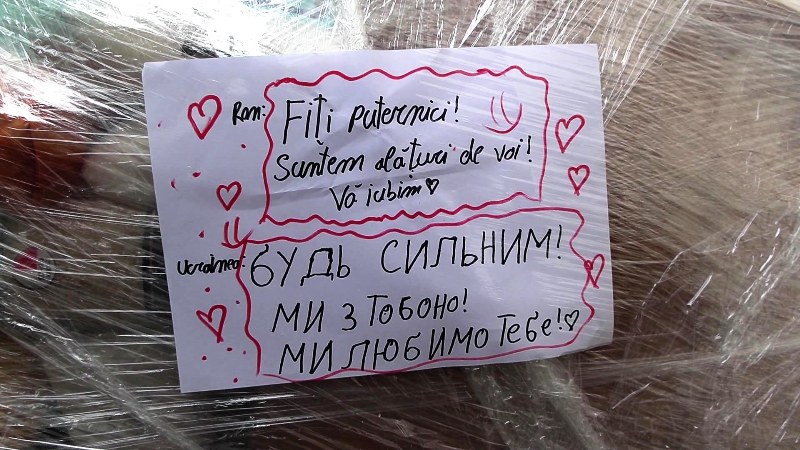 Rom: Fiți puternici!
Suntem alături de voi!
Vă iubim♡
Ucraineă: БУДЬ СИЛЬНИМ!
МИ З ТОБОНО!
МИ ЛЮБИМО ТЕБЕ!♡